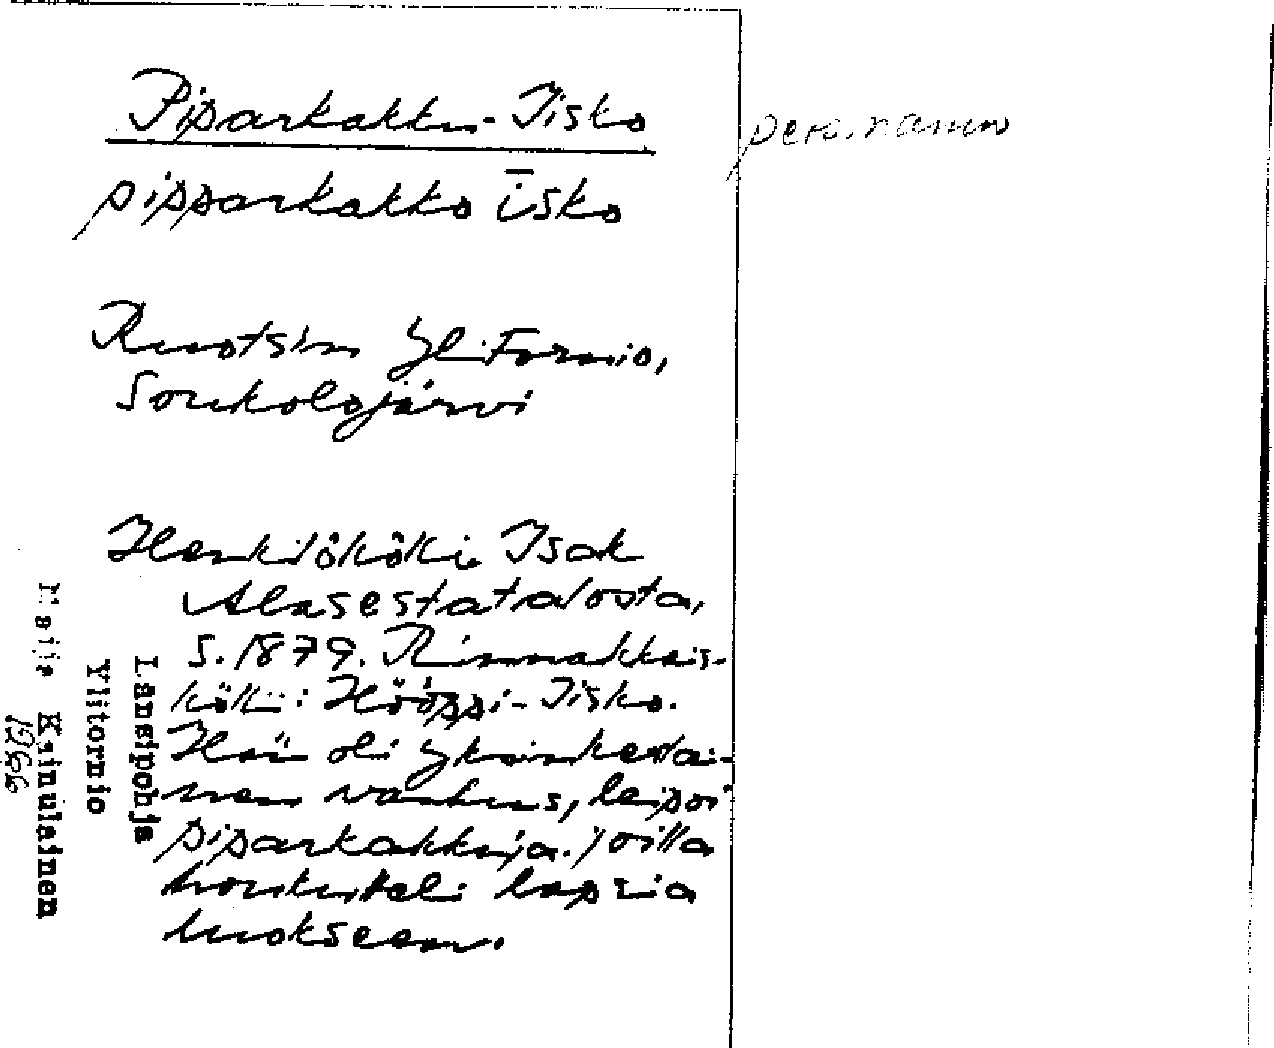 Piparkakku-Iisko
pers. namn
pipparkakko īsko
Ruotsin Ylitornio,
Soukolojärvi
Henkilökök. Isak
Alasestatalosta,
s. 1879. Rinnakkais-
kök.: Hööppi-Iisko.
Hän oli yksinkertai-
nen vanhus, leipoi
piparkakkuja. joilla
houkutteli lapsia
luokseen.
Länsipohja
Ylitornio
Maija Kainulainen
1966